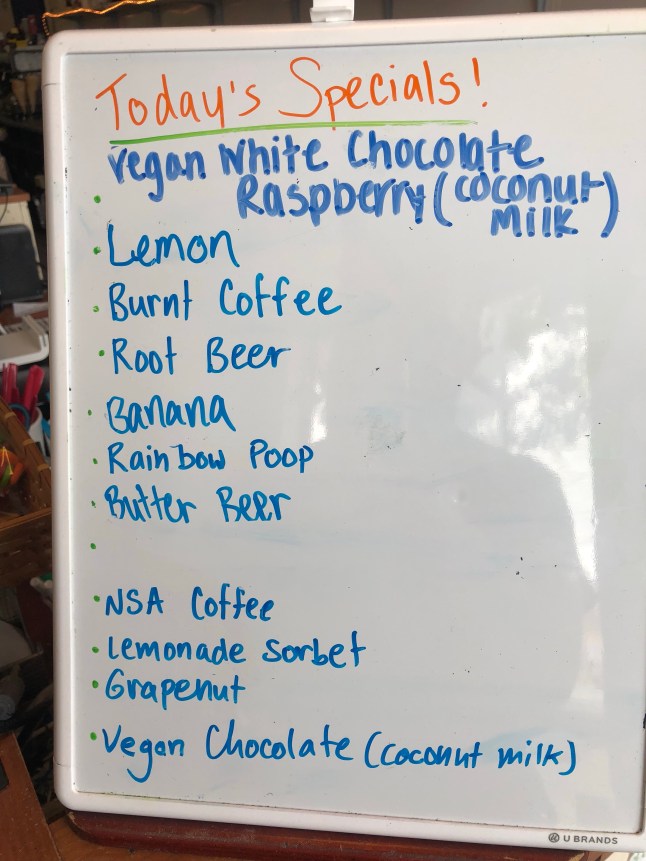 Today's Specials!
Vegan White Chocolate
Raspberry (coconut
Milk)
Lemon
Burnt Coffee
Root Beer
Banana
Rainbow Poop
Butter Beer
NSA Coffee
Lemonade Sorbet
Grapenut
Vegan Chocolate (coconut milk)
U BRANDS